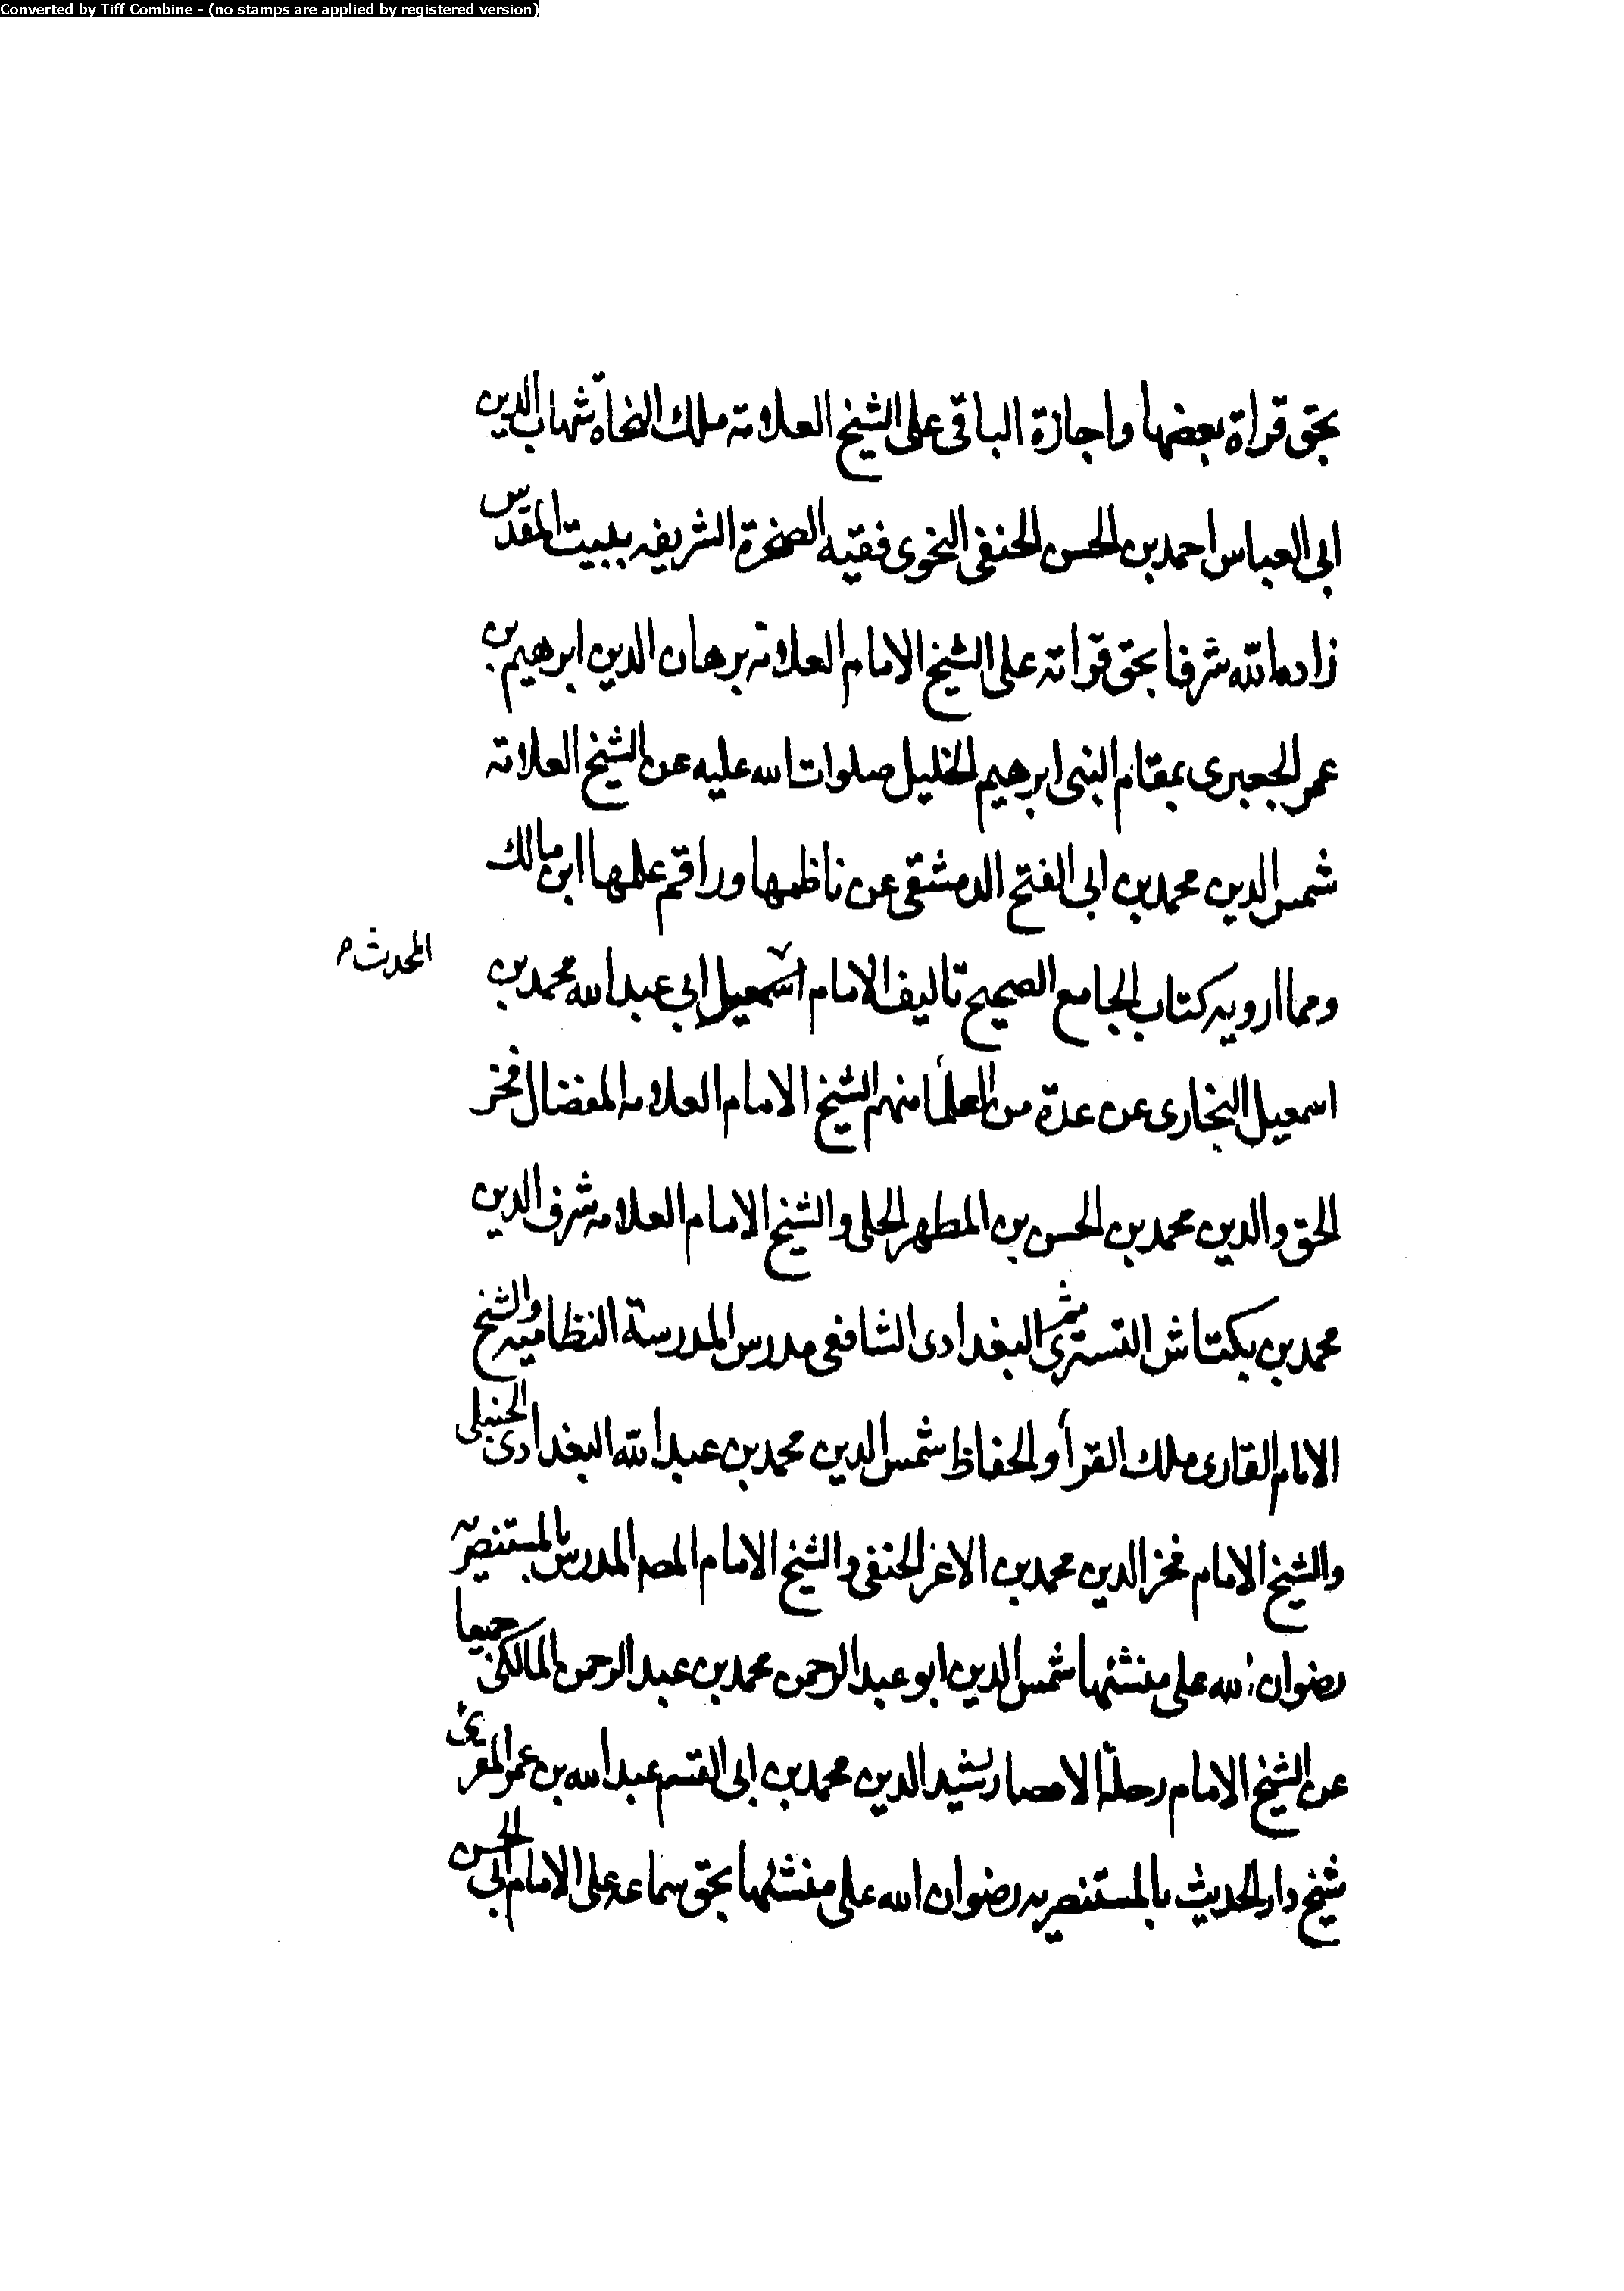 Converted by Tiff Combine - (no stamps are applied by registered version)
بحق قراة بعضها واجازة الباقى على الشيخ العلامة ملك النحاة شهاب الدين
ابى العباس احمد بن الحسن الحنفى النحوى فقيه الصخرة الشريفه ببيت المقدس
زاده الله شرفا بحق قراته على الشيخ الامام العلامة برهان الدين ابرهيم بن
عمر الجعبرى بمقام النبى ابرهيم الخليل صلوات الله عليه عن الشيخ العلامة
شمس الدين محمد بن ابى الفتح الدمشقى عن ناظمها وراقم علمها ابن مالك
ومما ارويه كتاب الجامع الصحيح تاليف الامام اسمعيل ابي عبد الله محمد بن
المحدث م
اسمعيل البخارى عن عدة من العلمأ منهم الشيخ الامام العلامه المفضال فخر
الحق والدين محمد بن الحسن بن المطهر الحلى والشيخ الامام العلامه شرف الدين
محمد بن بكتاش التسترى ثم البغدادى الشافعى مدرس المدرسة النظاميه والشيخ
الامام القارى ملك القرأ والحفاظ شمس الدين محمد بن عبد الله البغدادى الحنبلى
والشيخ الامام فخر الدين محمد بن الاعز الحنفى والشيخ الامام المدرس بالمستنصريه
رضوان الله على منشئها شمس الدين ابو عبد الرحمن محمد بن عبد الرحمن المالكى جميعا
عن الشيخ الامام رحلة الامصار رشيد الدين محمد بن ابى القسم عبد الله بن عمر المقرى
شيخ دار الحديث بالمستنصريه رضوان الله على منشئها بحق سماعه على الامام ابى الحسن